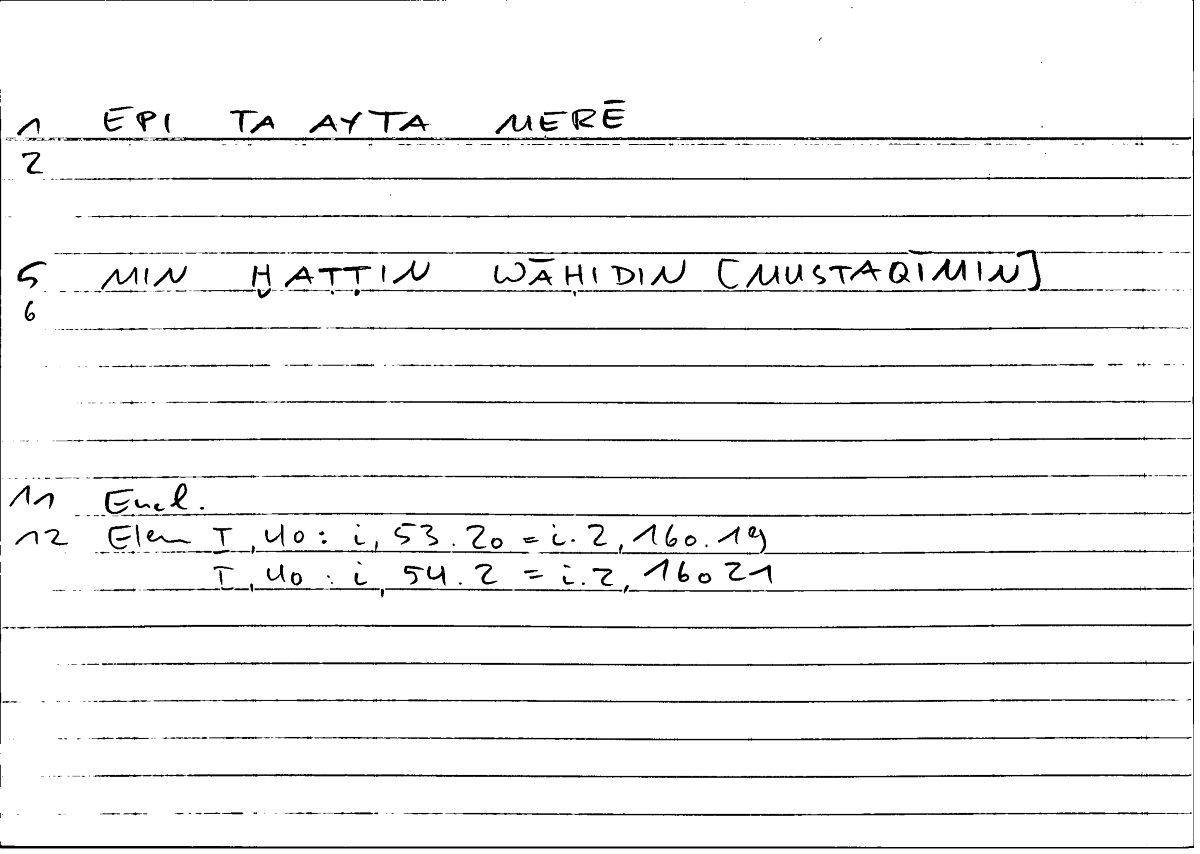 1 EPI TA AYTA MERĒ
2
5 MIN ḪAṬṬIN WĀḤIDIN [MUSTAQĪMIN]
6
11 Eucl.
12 Elem I, 40: i, 53.20 = i.2, 160.19
I, 40: i, 54.2 = i.2, 160 21